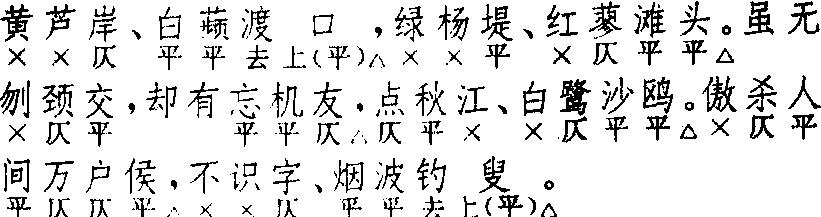 黄芦岸、白蘋渡口，绿杨堤、红蓼滩头。虽无
× × 仄 平 平 去 上(平)△ × × 平 × 仄 平 平 △
刎颈交，却有忘机友，点秋江、白鹭沙鸥。傲杀人
× 仄 平 平 平 仄 △ 仄 平 × × 仄 平 平 △ × 仄 平
间万户侯，不识字、烟波钓叟。
平 仄 仄 平 △ × × 仄 平 平 去 上(平)△